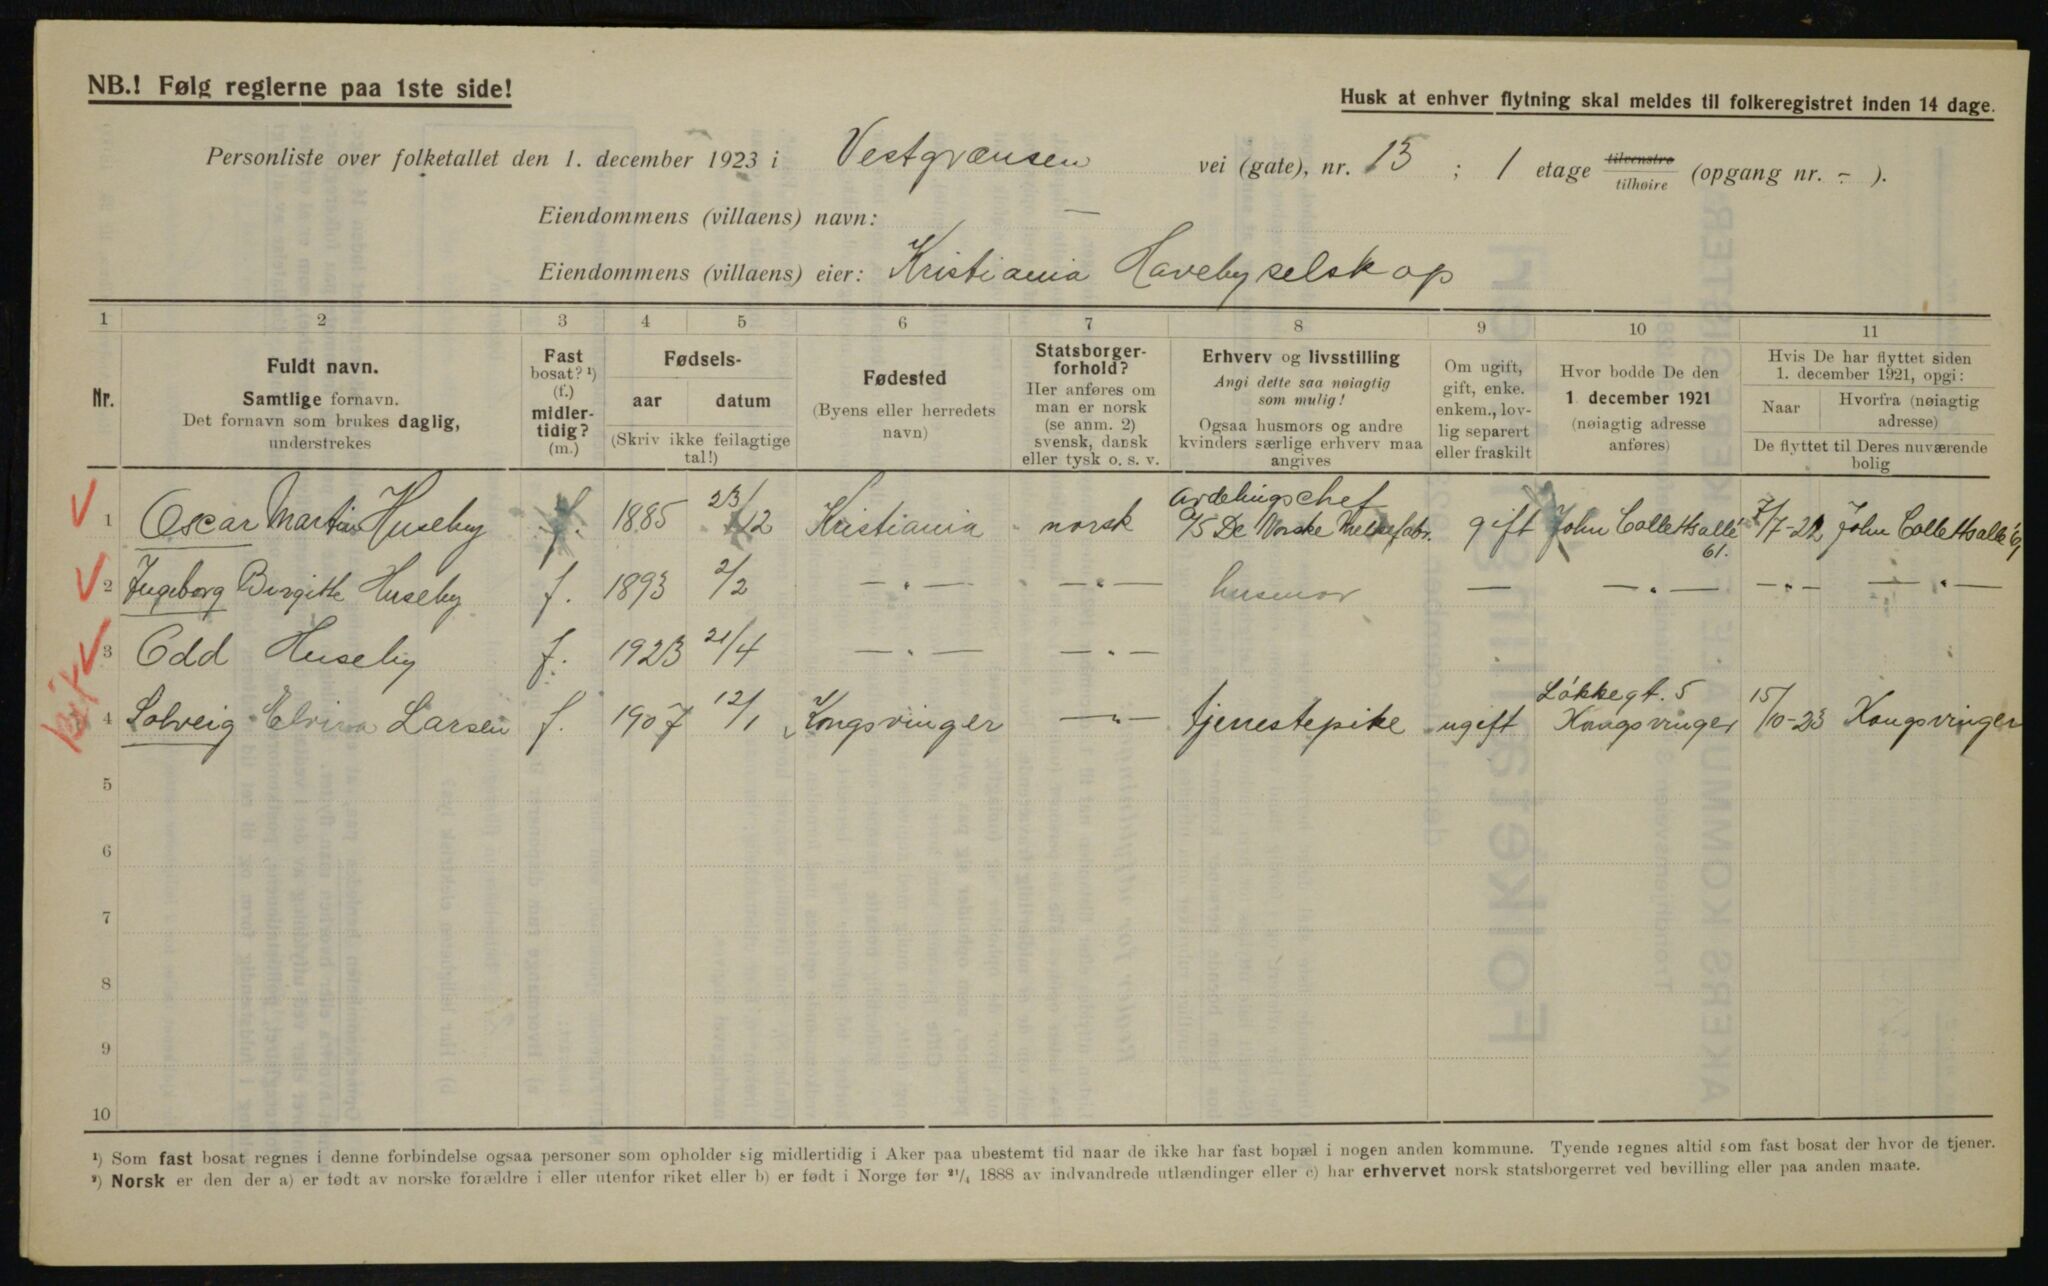 NB.! Følg reglerne paa 1ste side!
Husk at enhver flytning skal meldes til folkeregistret inden 14 dage.
Personliste over folketallet den 1. december 1923 i Vestgrænsen vei (gate), nr. 13 ; 1 etage tilvenstre tilhøire (opgang nr. - ).
Eiendommens (villaens) navn: —
Eiendommens (villaens) eier: Kristiania Havebyselskap
1 2 3 4 5 6 7 8 9 10 11
Nr.
Fuldt navn.
Samtlige fornavn.
Det fornavn som brukes daglig,
understrekes
Fast
bosat? ¹)
(f.)
midler-
tidig?
(m.)
Fødsels-
aar datum
(Skriv ikke feilagtige
tal!)
Fødested
(Byens eller herredets
navn)
Statsborger-
forhold?
Her anføres om
man er norsk
(se anm. 2)
svensk, dansk
eller tysk o. s. v.
Erhverv og livsstilling
Angi dette saa nøiagtig
som mulig!
Ogsaa husmors og andre
kvinders særlige erhverv maa
angives
Om ugift,
gift, enke.
enkem., lov-
lig separert
eller fraskilt
Hvor bodde De den
1 december 1921
(nøiagtig adresse
anføres)
Hvis De har flyttet siden
1. december 1921, opgi:
Naar Hvorfra (nøiagtig
adresse)
De flyttet til Deres nuværende
bolig
1 Oscar Martin Huseby f. 1885 23/12 Kristiania norsk avdelingschef A/S De Norske Melkefabr. gift John Colletts allé 61. 7/7-22 John Colletts allé 61
2 Ingeborg Birgitte Huseby f. 1893 2/2 — " — — " — husmor — — " — — " — — " —
3 Odd Huseby f. 1923 21/4 — " — — " —
4 Solveig Elvira Larsen f. 1907 12/1 Kongsvinger — " — tjenestepike ugift Løkkegt. 5 Kongsvinger 15/10-23 Kongsvinger
5
6
7
8
9
10
¹) Som fast bosat regnes i denne forbindelse ogsaa personer som opholder sig midlertidig i Aker paa ubestemt tid naar de ikke har fast bopæl i nogen anden kommune. Tyende regnes altid som fast bosat der hvor de tjener.
²) Norsk er den der a) er født av norske forældre i eller utenfor riket eller b) er født i Norge før ²¹/₄ 1888 av indvandrede utlændinger eller c) har erhvervet norsk statsborgerret ved bevilling eller paa anden maate.